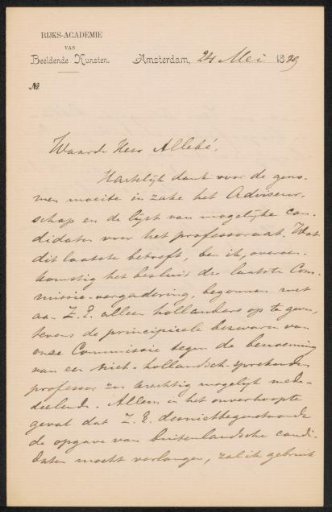 RIJKS-ACADEMIE
VAN
Beeldende Kunsten.
Amsterdam, 24 Mei 1879
No
Waarde Heer Allebé,
Hartelijk dank voor de geno-
men moeite in zake het Adviseur-
schap en de lijst van mogelijke can-
didaten voor het professoraat. Wat
dit laatste betreft, ben ik, overeen-
komstig het besluit der laatste Com-
missie-vergadering, begonnen met
aan Z.E. alleen hollanders op te geven,
tevens de principieele bezwaren van
onze Commissie tegen de benoeming
van een niet-hollandsch-sprekenden
professor zoo krachtig mogelijk mede-
deelende. Alleen in het onverhoopte
geval dat Z.E. desniettegenstaande
de opgave van buitenlandsche candi-
daten mocht verlangen, zal ik gebruik